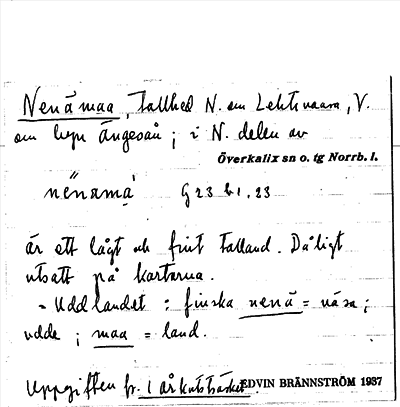 Nenämaa, Tallhed N. om Lehtivaara, V.
om byn Ängeså; i N. delen av
Överkalix sn o. tg Norrb. l.
nẹ̈nəmạ G 23 b 1, 23
är ett lågt och fint talland. Dåligt
utsatt på kartorna.
= Uddlandet: finska nenä = näsa;
udde; maa = land.
Uppgiften fr.
EDVIN BRÄNNSTRÖM 1937